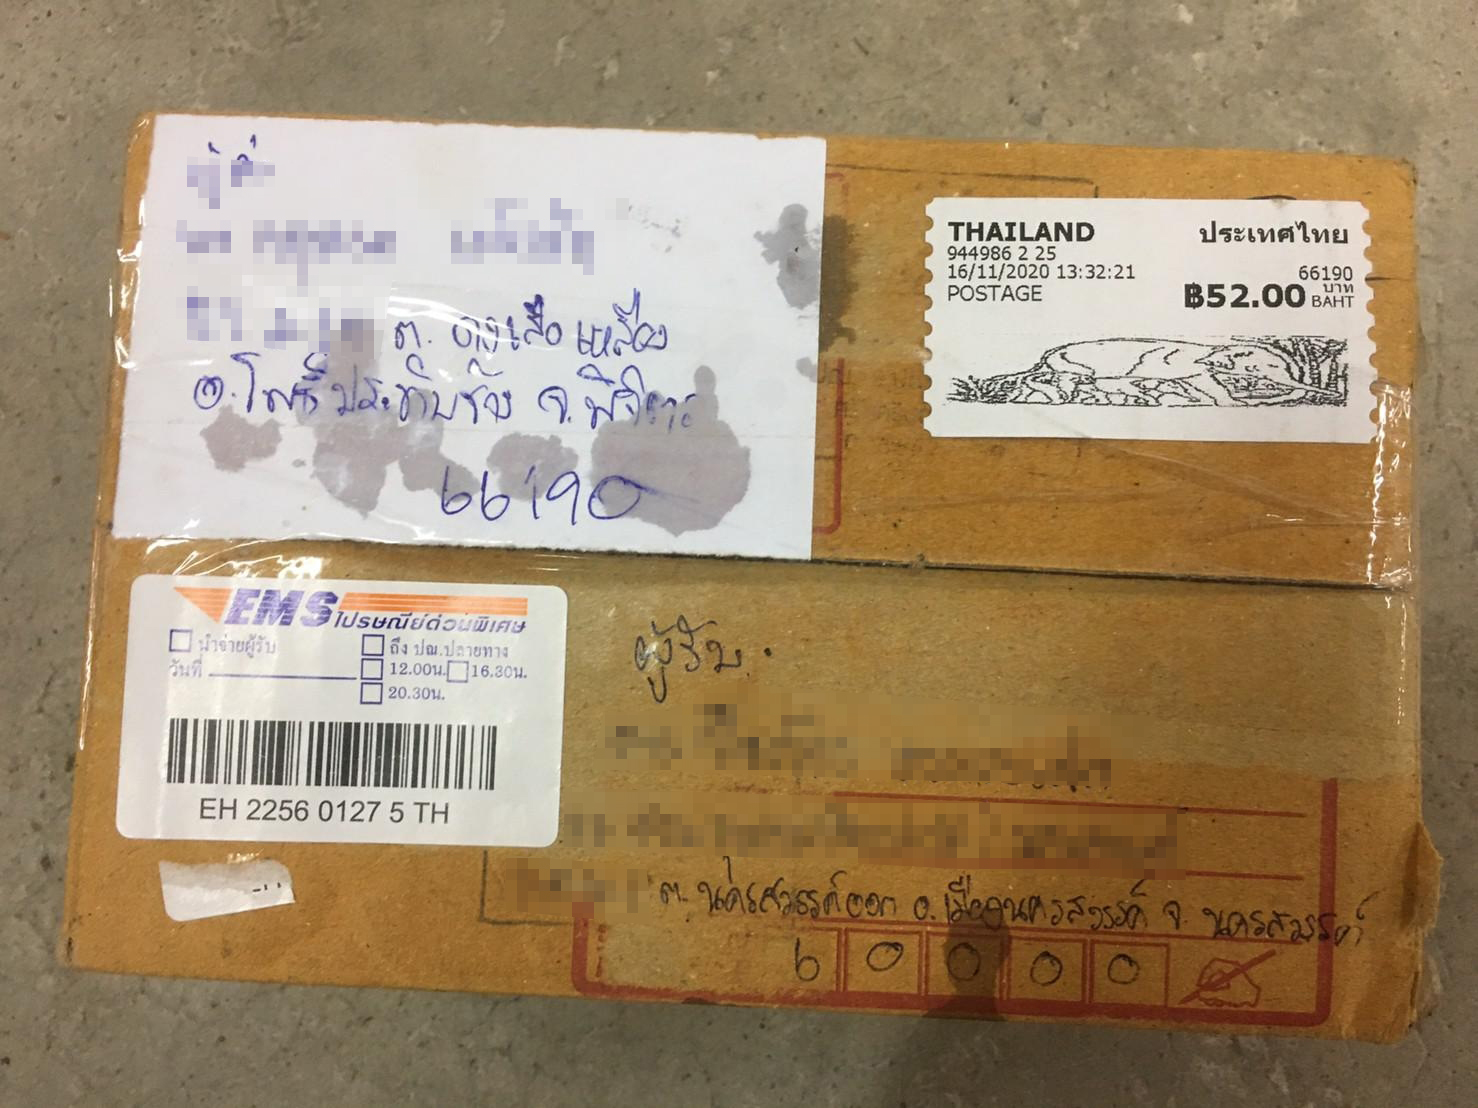 ต. ดงเสือเหลือง
อ. โพธิ์ประทับช้าง จ. พิจิตร
66190
THAILAND ประเทศไทย
944986 2 25
16/11/2020 13:32:21 66190
POSTAGE ฿52.00 บาท BAHT
EMS ไปรษณีย์ด่วนพิเศษ
นำจ่ายผู้รับ ถึง ปณ.ปลายทาง
วันที่ 12.00น. 16.30น.
20.30น.
EH 2256 0127 5 TH
ผู้รับ.
ต. นครสวรรค์ออก อ. เมืองนครสวรรค์ จ. นครสวรรค์
60000